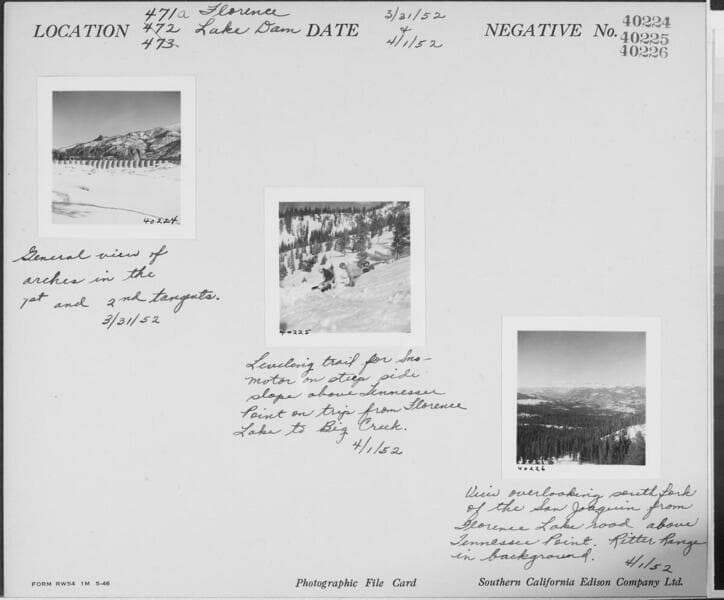 LOCATION 471a Florence DATE 3/31/52 NEGATIVE No. 40224
472 Lake Dam & 40225
473 4/1/52 40226
40224
General view of
arches in the
1st and 2nd tangents.
3/31/52
40225
Leveling trail for Sno-
motor on steep side
slope above Tennessee
Point on trip from Florence
Lake to Big Creek.
4/1/52
40226
View overlooking south fork
of the San Joaquin from
Florence Lake road above
Tennessee Point. Ritter Range
in background. 4/1/52
FORM RW54 1M 5-46 Photographic File Card Southern California Edison Company Ltd.